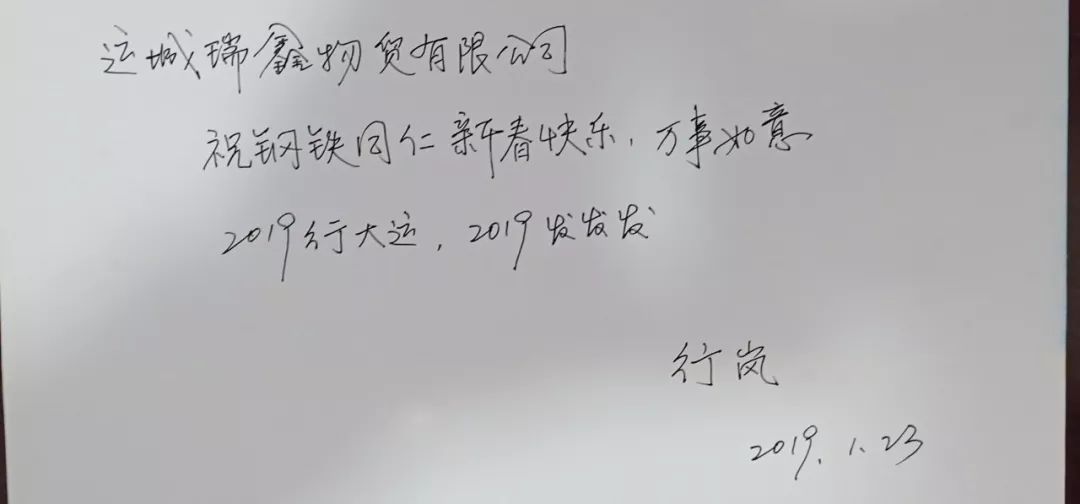 运城瑞鑫物贸有限公司
祝钢铁同仁新春快乐,万事如意
2019行大运,2019发发发
行岚
2019.1.23